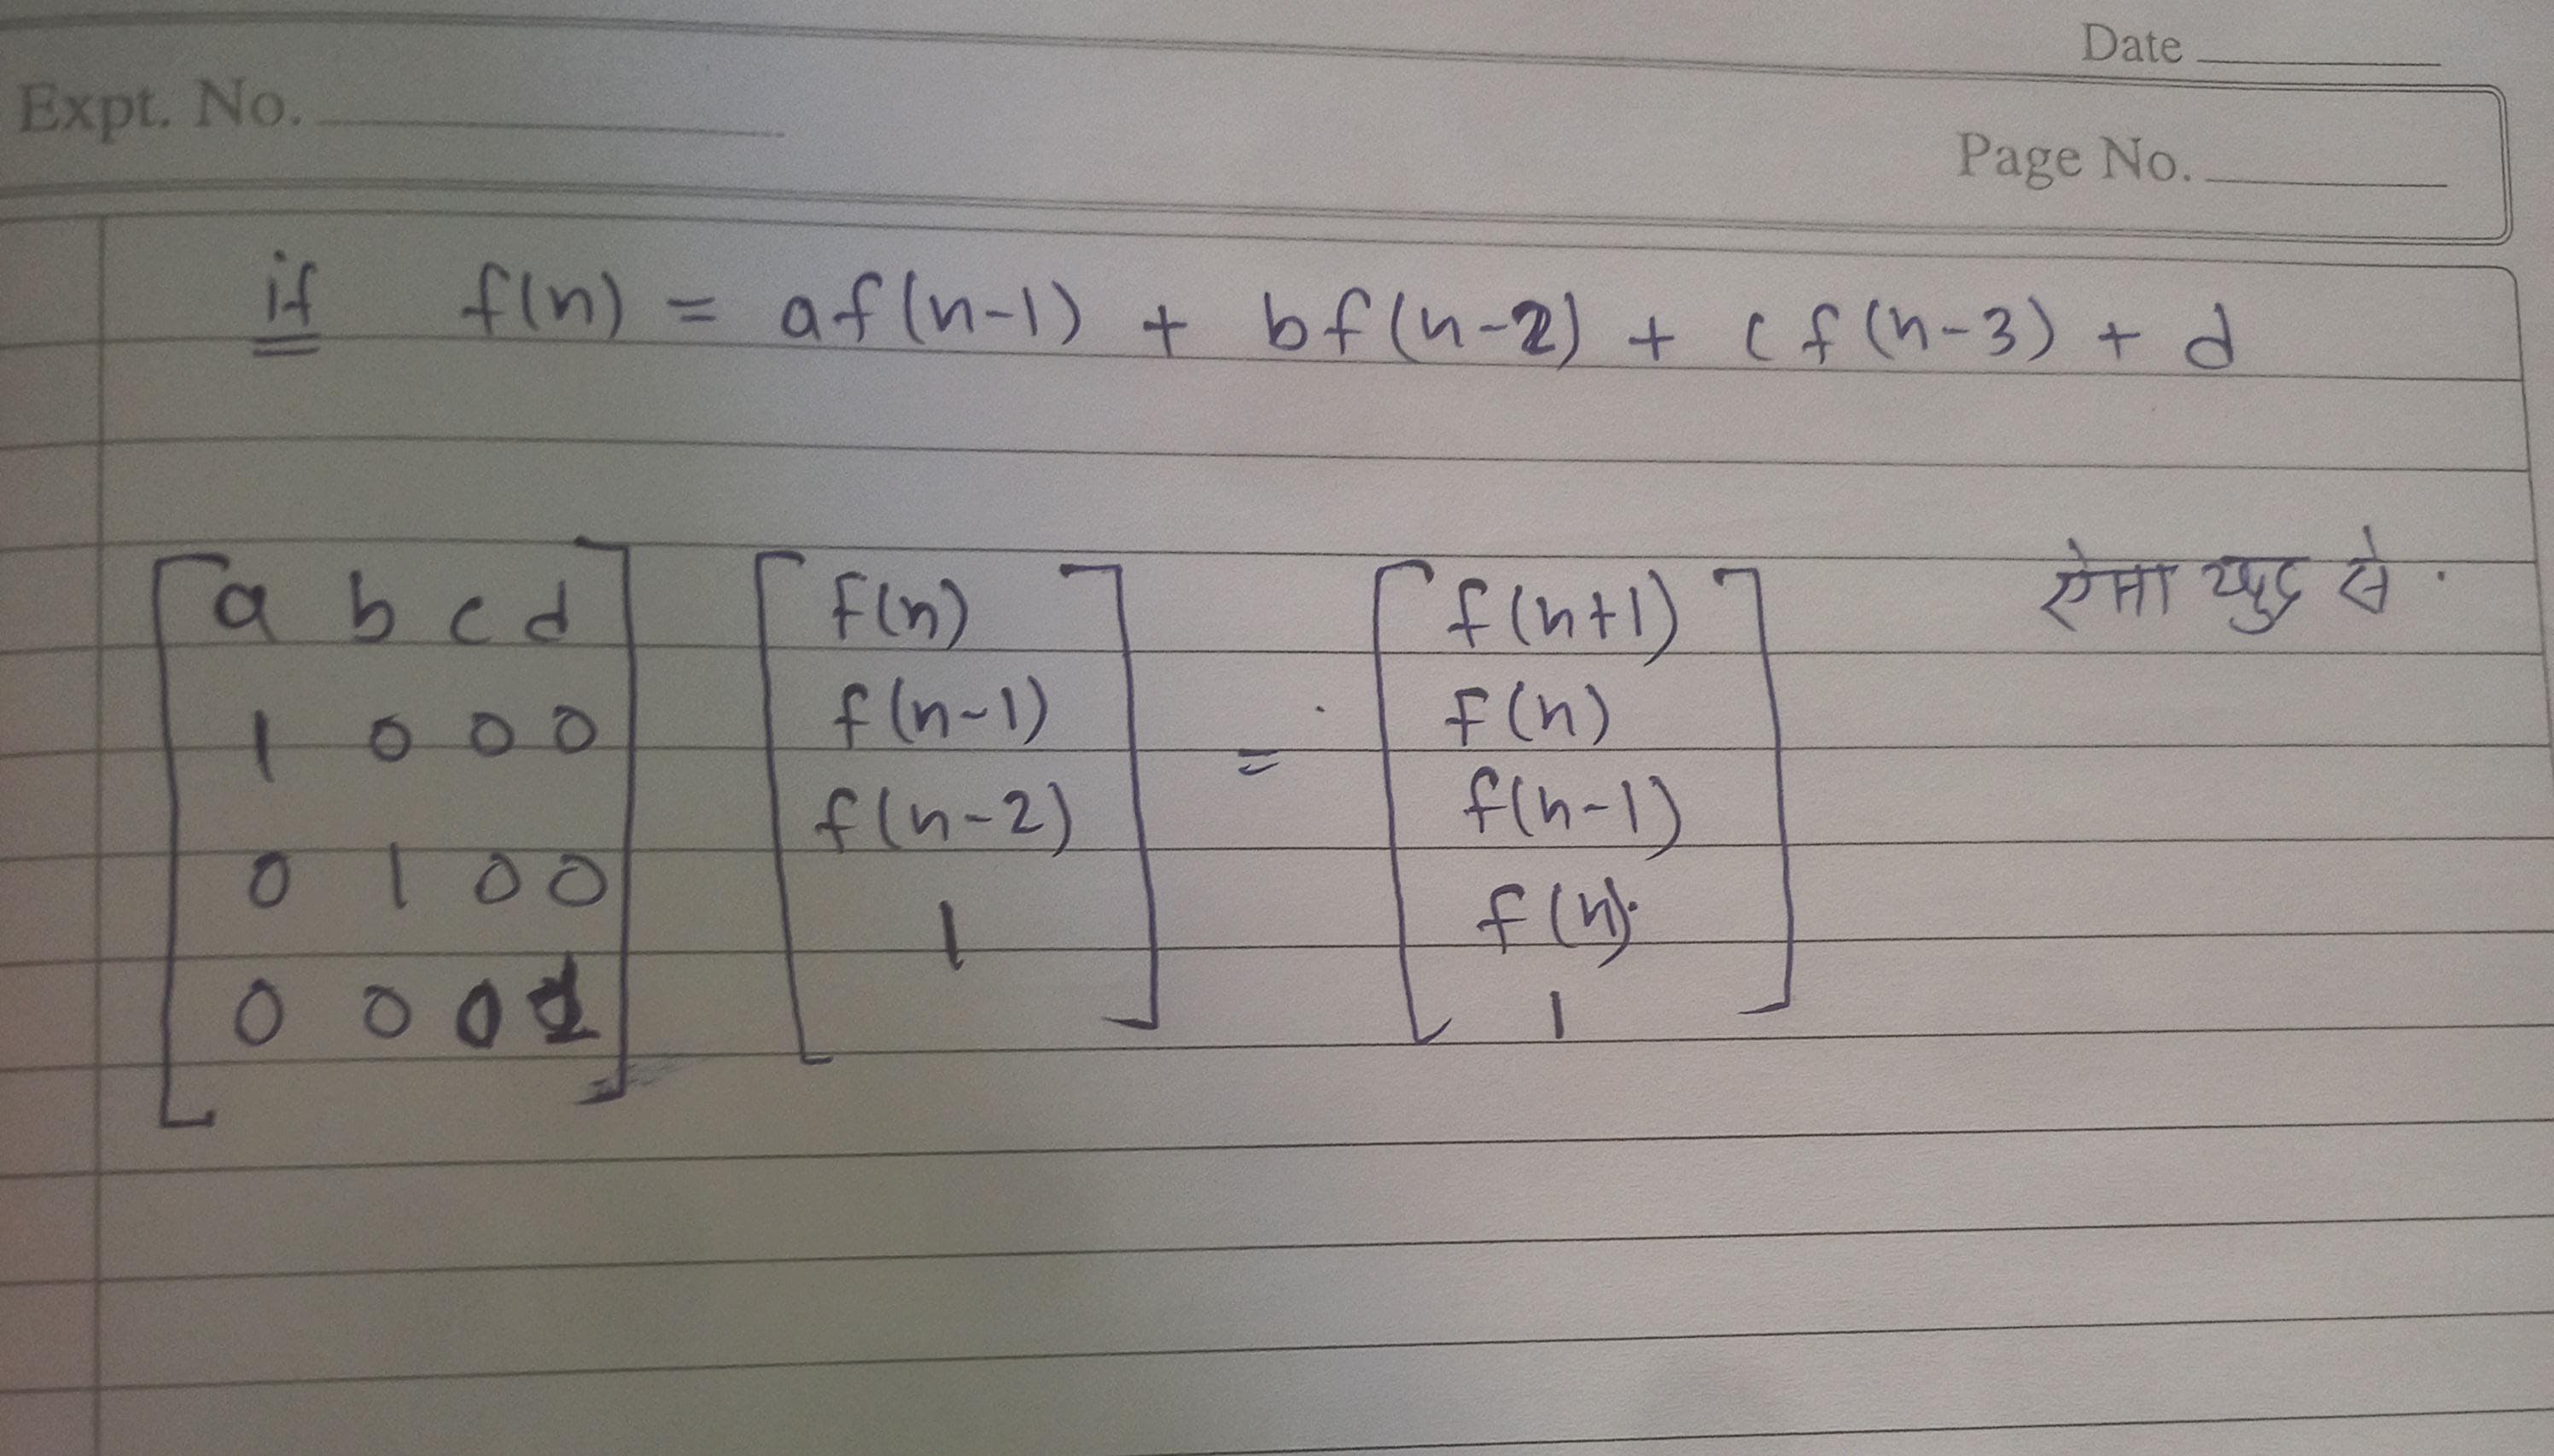 Date
Expt. No.
Page No.
if f(n) = af(n-1) + bf(n-2) + cf(n-3) + d
a b c d
1 0 0 0
0 1 0 0
0 0 0 1
f(n)
f(n-1)
f(n-2)
1
=
f(n+1)
f(n)
f(n-1)
f(n)
1
से